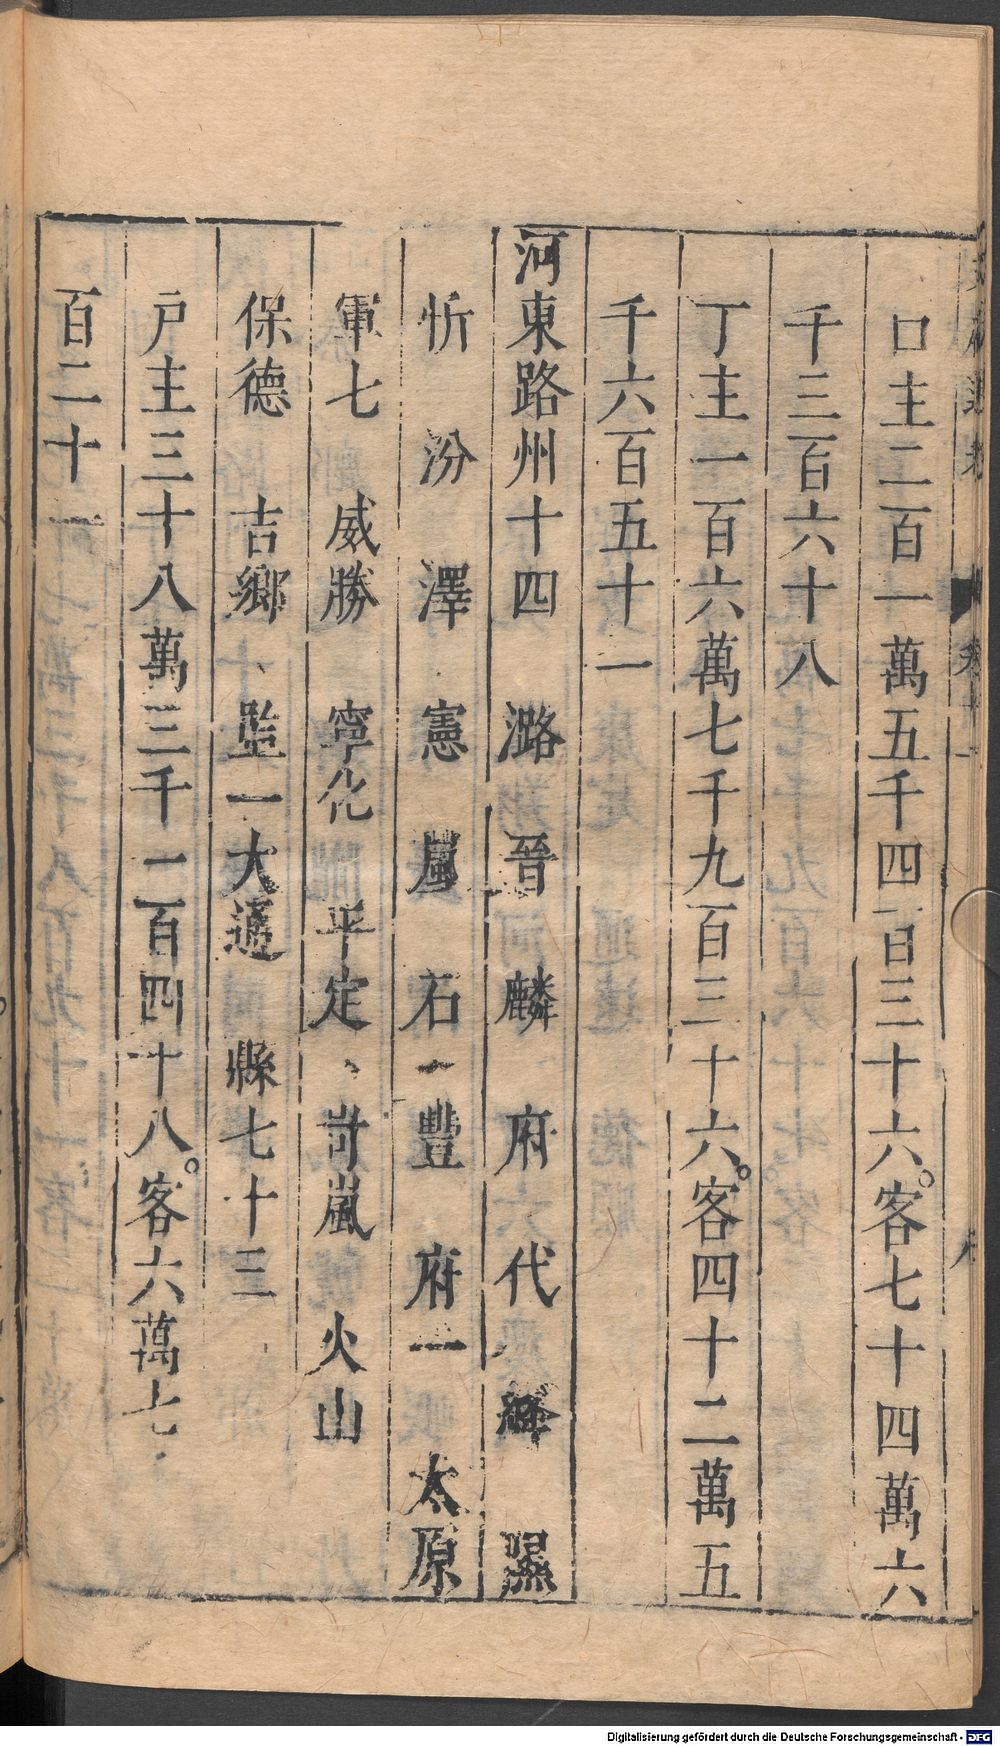 口主二百一萬五千四百三十六。客七十四萬六
千三百六十八
丁主一百六萬七千九百三十六。客四十二萬五
千六百五十一
河東路州十四 潞 晉 麟 府 代 絳 隰
忻 汾 澤 憲 嵐 石 豐 府一 太原
軍七 威勝 寧化 平定 岢嵐 火山
保德 吉鄉 監一大通 縣七十三
戶主三十八萬三千一百四十八。客六萬七
百二十一
Digitalisierung gefördert durch die Deutsche Forschungsgemeinschaft - DFG